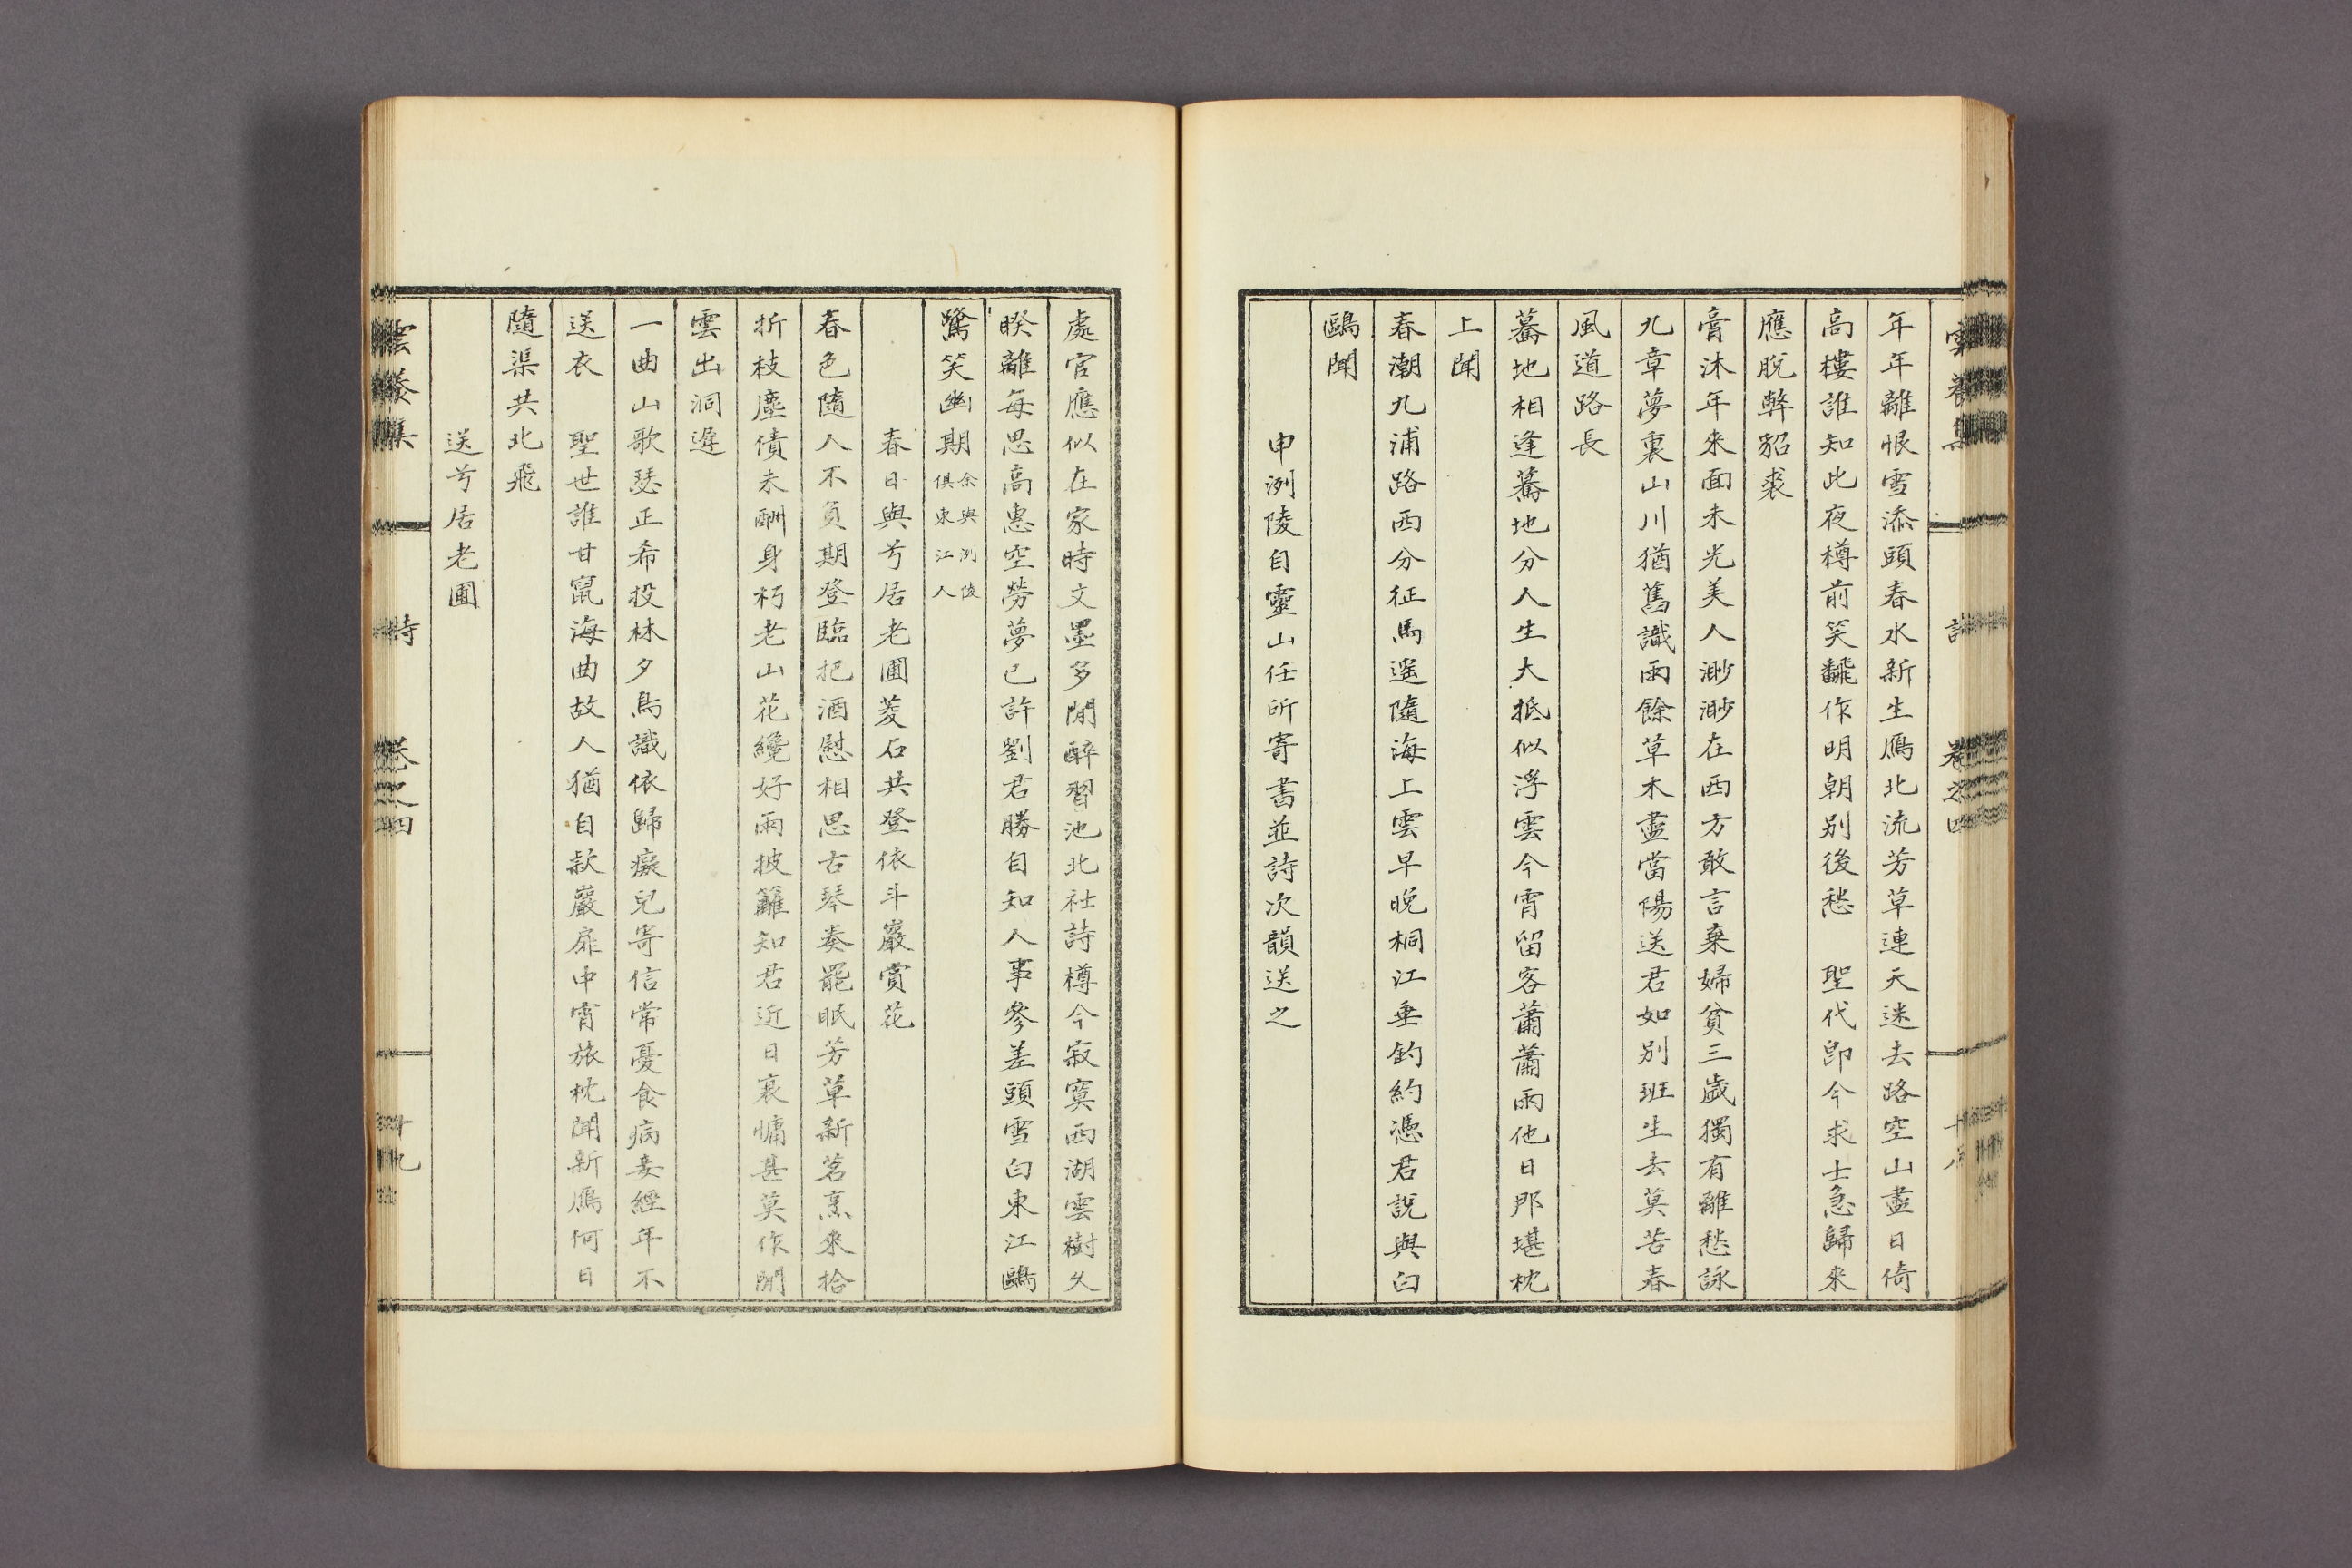 雲養集 詩 卷之四 十八
年年離恨雪添頭春水新生鴈北流芳草連天迷去路空山盡日倚
高樓誰知此夜樽前笑飜作明朝別後愁 聖代卽今求士急歸來
應脫弊貂裘
膏沐年來面未光美人渺渺在西方敢言棄婦貧三歲獨有離愁詠
九章夢裏山川猶舊識雨餘草木盡當陽送君如別班生去莫苦春
風道路長
驀地相逢驀地分人生大抵似浮雲今宵留客蕭蕭雨他日那堪枕
上聞
春潮九浦路西分征馬遙隨海上雲早晚桐江垂釣約憑君說與白
鷗聞
申洌陵自靈山任所寄書並詩次韻送之
處官應似在家時文墨多閒醉習池北社詩樽今寂寞西湖雲樹久
睽離每思高惠空勞夢已許劉君勝自知人事參差頭雪白東江鷗
鷺笑幽期余與洌陵俱東江人
春日與兮居老圃菱石共登依斗巖賞花
春色隨人不負期登臨把酒慰相思古琴奏罷眠芳草新茗烹來拾
折枝塵債未酬身朽老山花纔好雨披籬知君近日衰慵甚莫作閒
雲出洞遲
一曲山歌瑟正希投林夕鳥識依歸癡兒寄信常憂食病妾經年不
送衣 聖世誰甘竄海曲故人猶自款巖扉中宵旅枕聞新鴈何日
隨渠共北飛
送兮居老圃
雲養集 詩 卷之四 十九